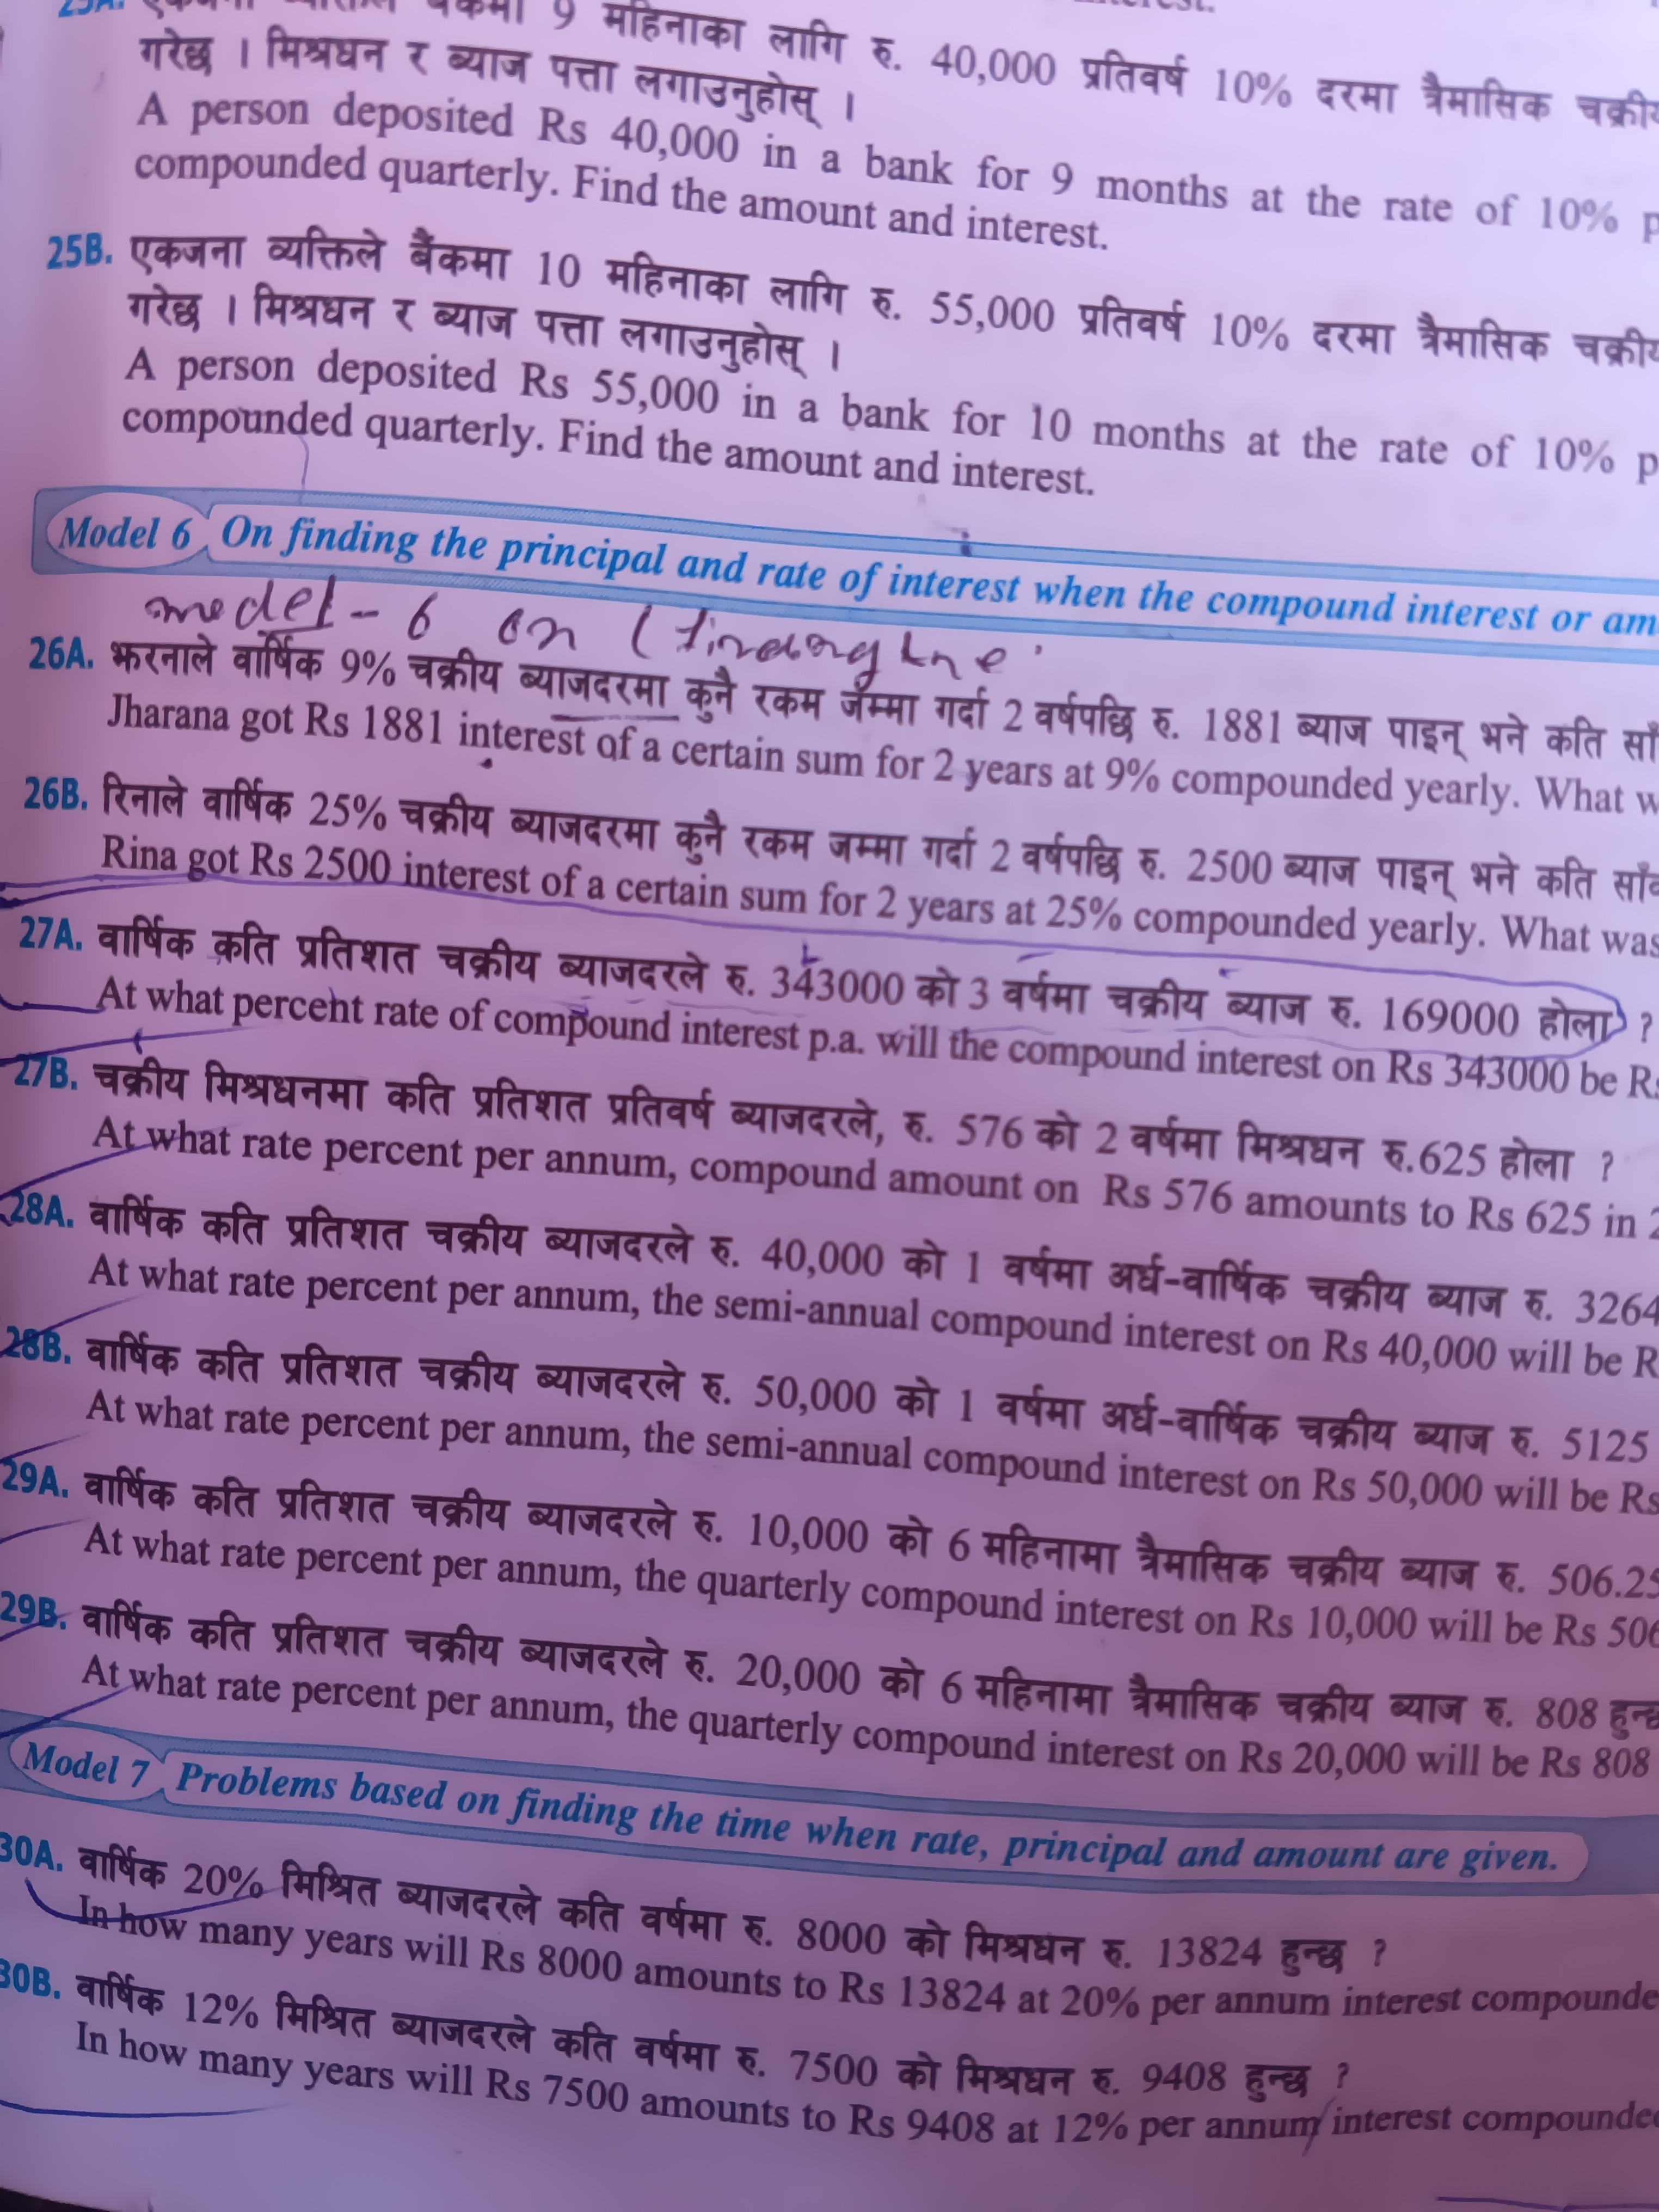 25A. एकजना व्यक्तिले बैंकमा 9 महिनाका लागि रु. 40,000 प्रतिवर्ष 10% दरमा त्रैमासिक
गरेछ । मिश्रधन र ब्याज पत्ता लगाउनुहोस् ।
A person deposited Rs 40,000 in a bank for 9 months at the rate of 10%
compounded quarterly. Find the amount and interest.
25B. एकजना व्यक्तिले बैंकमा 10 महिनाका लागि रु. 55,000 प्रतिवर्ष 10% दरमा त्रैमासिक
गरेछ । मिश्रधन र ब्याज पत्ता लगाउनुहोस् ।
A person deposited Rs 55,000 in a bank for 10 months at the rate of 10%
compounded quarterly. Find the amount and interest.
Model 6 On finding the principal and rate of interest when the compound interest or am
model - 6 on (finding the
26A. झरनाले वार्षिक 9% चक्रीय ब्याजदरमा कुनै रकम जम्मा गर्दा 2 वर्षपछि रु. 1881 ब्याज पाइन् भने कति
Jharana got Rs 1881 interest of a certain sum for 2 years at 9% compounded yearly. What w
26B. रिनाले वार्षिक 25% चक्रीय ब्याजदरमा कुनै रकम जम्मा गर्दा 2 वर्षपछि रु. 2500 ब्याज पाइन् भने कति
Rina got Rs 2500 interest of a certain sum for 2 years at 25% compounded yearly. What was
27A. वार्षिक कति प्रतिशत चक्रीय ब्याजदरले रु. 343000 को 3 वर्षमा चक्रीय ब्याज रु. 169000 होला ?
At what percent rate of compound interest p.a. will the compound interest on Rs 343000 be Rs
27B. चक्रीय मिश्रधनमा कति प्रतिशत प्रतिवर्ष ब्याजदरले, रु. 576 को 2 वर्षमा मिश्रधन रु.625 होला ?
At what rate percent per annum, compound amount on Rs 576 amounts to Rs 625 in 2
28A. वार्षिक कति प्रतिशत चक्रीय ब्याजदरले रु. 40,000 को 1 वर्षमा अर्ध-वार्षिक चक्रीय ब्याज रु. 3264
At what rate percent per annum, the semi-annual compound interest on Rs 40,000 will be R
28B. वार्षिक कति प्रतिशत चक्रीय ब्याजदरले रु. 50,000 को 1 वर्षमा अर्ध-वार्षिक चक्रीय ब्याज रु. 5125
At what rate percent per annum, the semi-annual compound interest on Rs 50,000 will be Rs
29A. वार्षिक कति प्रतिशत चक्रीय ब्याजदरले रु. 10,000 को 6 महिनामा त्रैमासिक चक्रीय ब्याज रु. 506.25
At what rate percent per annum, the quarterly compound interest on Rs 10,000 will be Rs 506
29B. वार्षिक कति प्रतिशत चक्रीय ब्याजदरले रु. 20,000 को 6 महिनामा त्रैमासिक चक्रीय ब्याज रु. 808 हुन्छ
At what rate percent per annum, the quarterly compound interest on Rs 20,000 will be Rs 808
Model 7 Problems based on finding the time when rate, principal and amount are given.
30A. वार्षिक 20% मिश्रित ब्याजदरले कति वर्षमा रु. 8000 को मिश्रधन रु. 13824 हुन्छ ?
In how many years will Rs 8000 amounts to Rs 13824 at 20% per annum interest compounde
30B. वार्षिक 12% मिश्रित ब्याजदरले कति वर्षमा रु. 7500 को मिश्रधन रु. 9408 हुन्छ ?
In how many years will Rs 7500 amounts to Rs 9408 at 12% per annum interest compounde